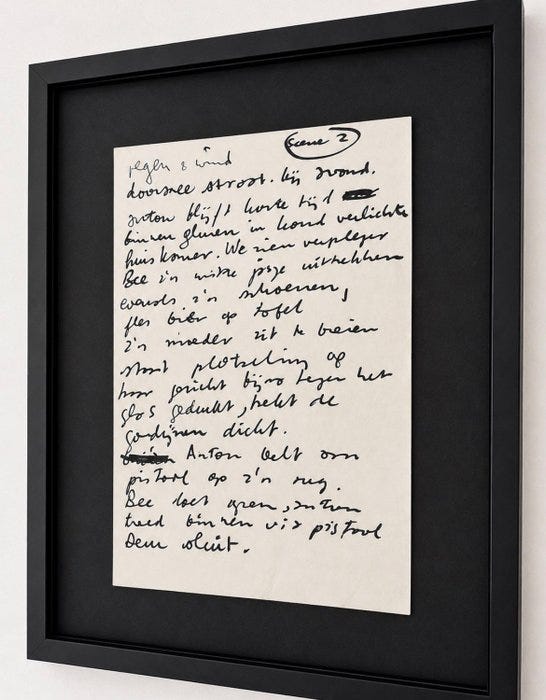 Scene 2
regen & wind
doorsnee straat. bij avond.
Anton blijft korte tijd
binnen gluren in hond verlichte
huiskamer. We zien verpleger
Bee z'n witte jasje uittrekken
evenals z'n schoenen,
fles bier op tafel
z'n moeder zit te breien
staat plotseling op
haar gezicht bijna tegen het
glas gedrukt, trekt de
gordijnen dicht.
Anton belt aan
pistool op z'n rug.
Bee doet open, Anton
treed binnen via pistool
Deur sluit.